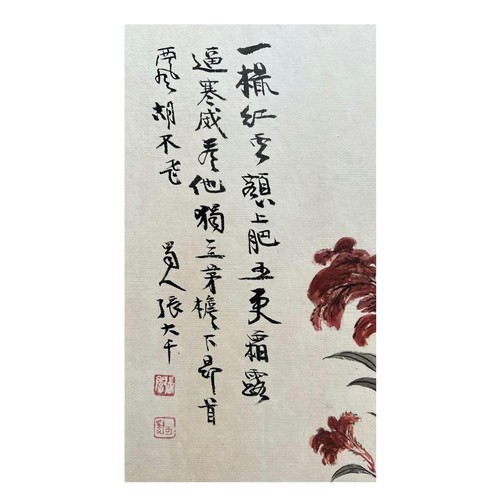 一撮红雲額上肥五更霜露
逼寒威羡他獨立茅檐下昂首
西風胡不飛
蜀人張大千